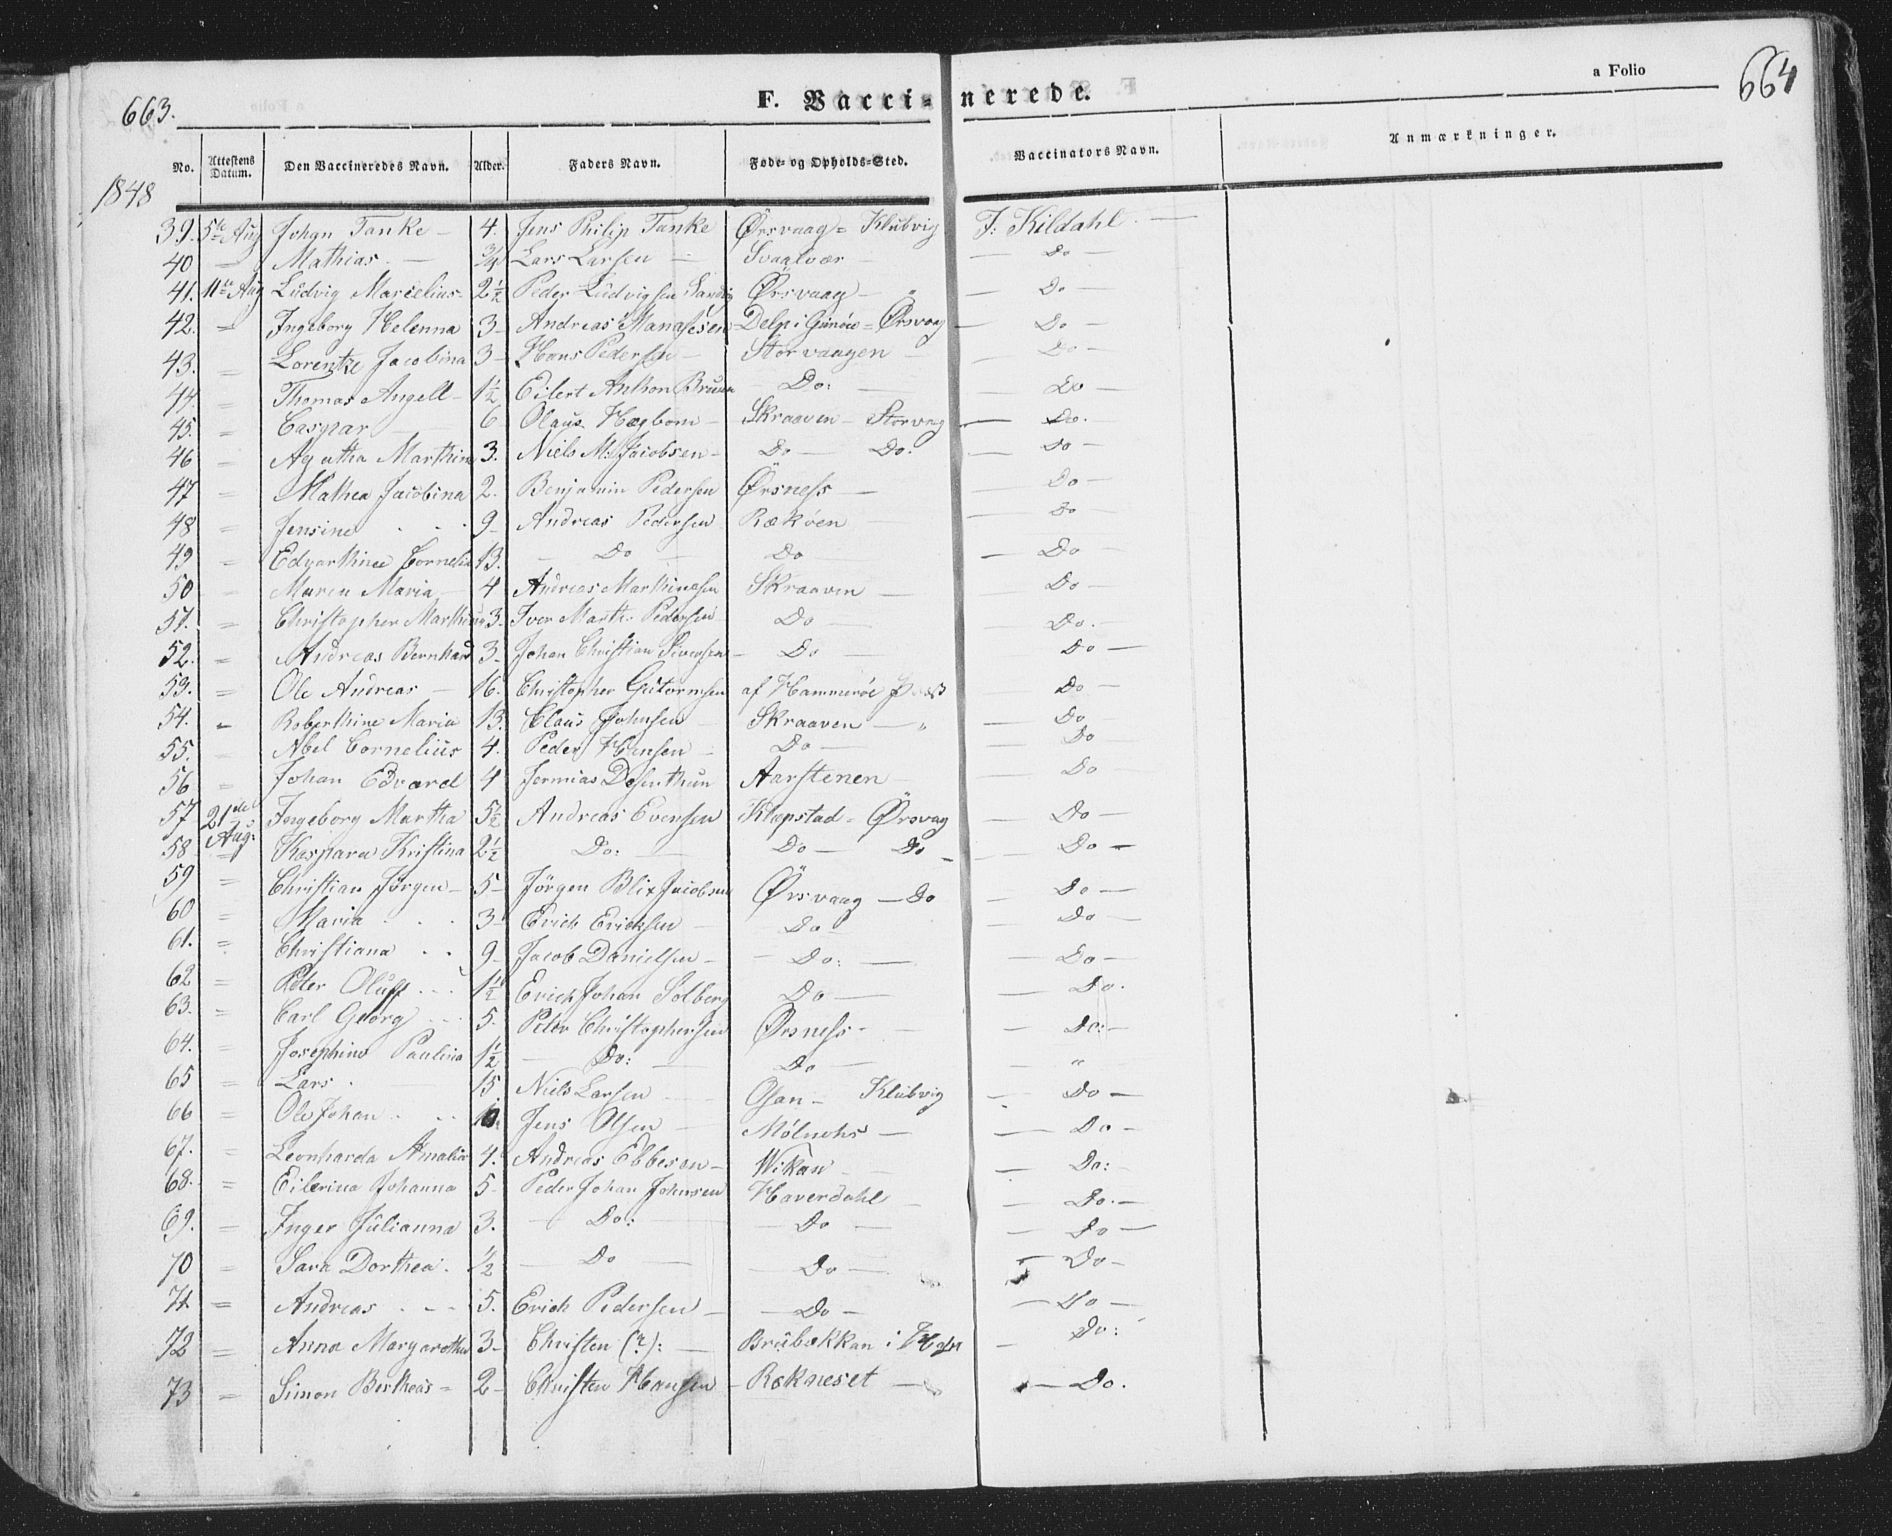 663.
F. Vacci-nerede.
a Folio
664
No. Attestens Datum. Den Vaccineredes Navn. Alder. Faders Navn. Føde- og Opholds-Sted. Vaccinators Navn. Anmærkninger.
1848
39. 5te Aug Johan Tanke - 4. Jens Philip Tanke Ørsvaag = Klubvig J: Kildahl. -
40 - Mathias. - 3/4 Lars Larsen - Svaalvær - - Do -
41. 11te Aug Ludvig Marcelius - 2 1/2 Peder Ludvigsen Sandvig Ørsvaag - " - Do -
42. = Ingeborg Helenna 3 - Andreas Manasesen Delp i Gimsöe = Ørsvaag - Do -
43. = Lorentze Jacobina 3 - Hans Pedersen - Storvaagen - - Do -
44. = Thomas Angell - 1 1/2 Eilert Anthon Bruun - Do: - Do -
45. = Caspar - 6 Olaus Hægbom - Skraaven - Storvaag - Do.
46 = Agatha Marthine 3. Niels M. Jacobsen - Do - Do: - Do -
47 = Mathea Jacobina 2. Benjamin Pedersen Ørsness - - Do -
48 = Jensine . . . 9 - Andreas Pedersen Rækøen - Do -
49 = Edvarthine Cornelia 13. - Do - Do - Do -
50 = Maren Maria - 4 Andreas Marthinesen Skraaven - Do -
51. = Christopher Marthinus 3. Iver Marth. Pedersen Do - - Do.
52. = Andreas Bernhard 3. Johan Christian Siversen - Do - Do -
53. = Ole Andreas - 16. Christopher Guttormsen af Hammerøe Do -
54. = Roberthine Maria 13. Claus Johnsen Skraaven - " - Do -
55. = Abel Cornelius 4. Peder Hansen - Do - - Do -
56 = Johan Edvard 4 Jermias Desenthun Aarstenen - Do -
57 21de Aug: Ingeborg Martha 5 1/2 Andreas Evensen Klæpstad - Ørsvag - Do -
58 = Kaspara Kristina 2 1/2 Do: - Do - Do - - Do -
59 = Christian Jørgen - 5 - Jørgen Blix Jacobsen Ørsvaag - Do - Do -
60 = Maria . . . 3 - Erich Ericksen - Do - - Do -
61. = Christiana . . 9 - Jacob Danielsen - - Do: - - Do -
62 = Peter Oluff . . . 1 1/2 Erich Johan Solberg Do - - Do.
63. = Carl Georg - - 5. Peter Christophersen Ørsness - - Do: -
64. = Josephine Paulina 1 1/2 - Do: - Do - "
65 = Lars . - 15 Niels Larsen - Osan - Klubvig - Do -
66 = Ole Johan . . . 10. Jens Olsen - Mølnehs - - Do -
67. = Leonharda Amalia 4. Andreas Ebbesen - Wikan - - Do: -
68. = Eilerina Johanna 5 - Peder Johan Johnsen Haverdahl - - Do. -
69. = Inger Julianna 3. - Do: - - Do - - Do -
70 = Sara Dorthea . 1/2 - Do - - Do - - Do -
71. = Andreas . - - 5. Erich Pedersen - - Do - - Do -
72 = Anna Margrethe 3 - Christen (?): - Brübækkan i - Do:
73 = Simon Bertheas = 2 - Christen Hansen - Rækneset - - Do.